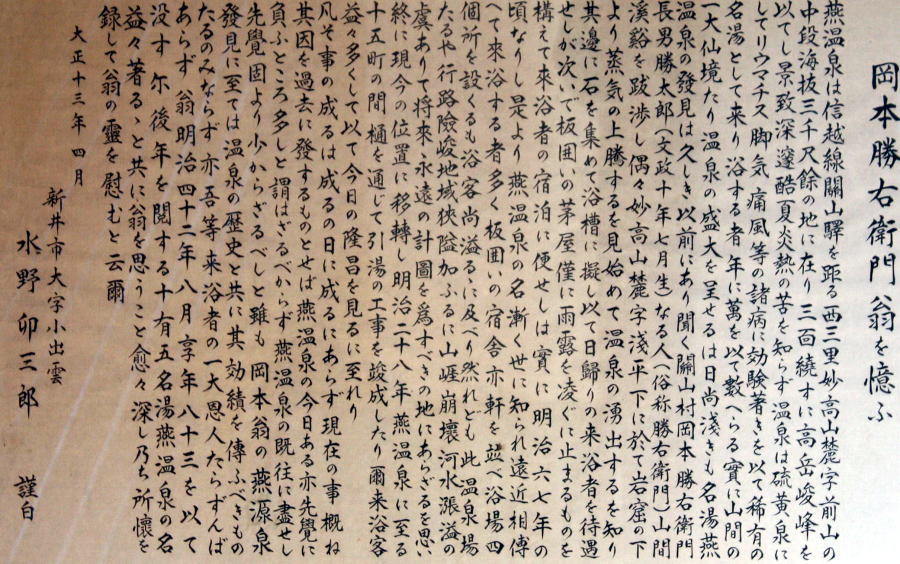 岡本勝右衛門翁を憶ふ
燕温泉は信越線關山驛を距る西三里妙高山麓字前山の
中段海抜三千尺餘の地に在り三面繞すに高岳峻峰を
以てし景致深邃酷夏炎熱の苦を知らず温泉は硫黄泉に
してリウマチス脚気痛風等の諸病に効驗著きを以て稀有の
名湯として来り浴する者年に萬を以て數へらる實に山間の
一大仙境たり温泉の盛大を呈せるは日尚淺きも名湯燕
温泉の發見は久しき以前にあり聞く關山村岡本勝右衛門
長男勝太郎(文政十年七月生)なる人(俗称勝右衛門)山間
溪谿を跋渉し偶々妙高山麓字淺平下に於て岩窟の下
より蒸気の上騰するを見始めて温泉の湧出するを知り
其邊に石を集めて浴槽に擬し以て日歸りの来浴者を待遇
せしが次いで板囲いの茅屋僅に雨露を凌ぐに止まるものを
構えて来浴者の宿泊に便せしは實に明治六七年の
頃なりし是より燕温泉の名漸く世に知られ遠近相傳
へて來浴する者多く板囲いの宿舎亦軒を並べ浴場四
個所を設くるも浴客尚溢るゝに及べり然れども此温泉場
たるや行路險峻地域狹隘加ふるに山崖崩壞河水漲溢の
虞ありて将來永遠の計圖を爲すべきの地にあらざるを思い
終に現今の位置に移轉し明治二十八年燕温泉に至る
十五町の間樋を通じて引湯の工事を竣成したり爾来浴客
益々多くして以て今日の隆昌を見るに至れり
凡そ事の成るは成るの日に成るにあらず現在の事概ね
其因を過去に發するものとせば燕温泉の今日ある亦先覺に
負ふところ多しと謂はざるべからず燕温泉の既往に盡せし
先覺固より少からざるべしと雖も岡本翁の燕源泉
發見に至ては温泉の歴史と共に其効績を傳ふべきもの
たるのみならず亦吾等来浴者の一大恩人たらずんば
あらず翁明治四十二年八月享年八十三を以て
没す尓後年を閲する十有五名湯燕温泉の名
益々著るゝと共に翁を思うこと愈々深し乃ち所懷を
録して翁の靈を慰むと云爾
大正十三年四月
新井市大字小出雲
水野卯三郎 謹白